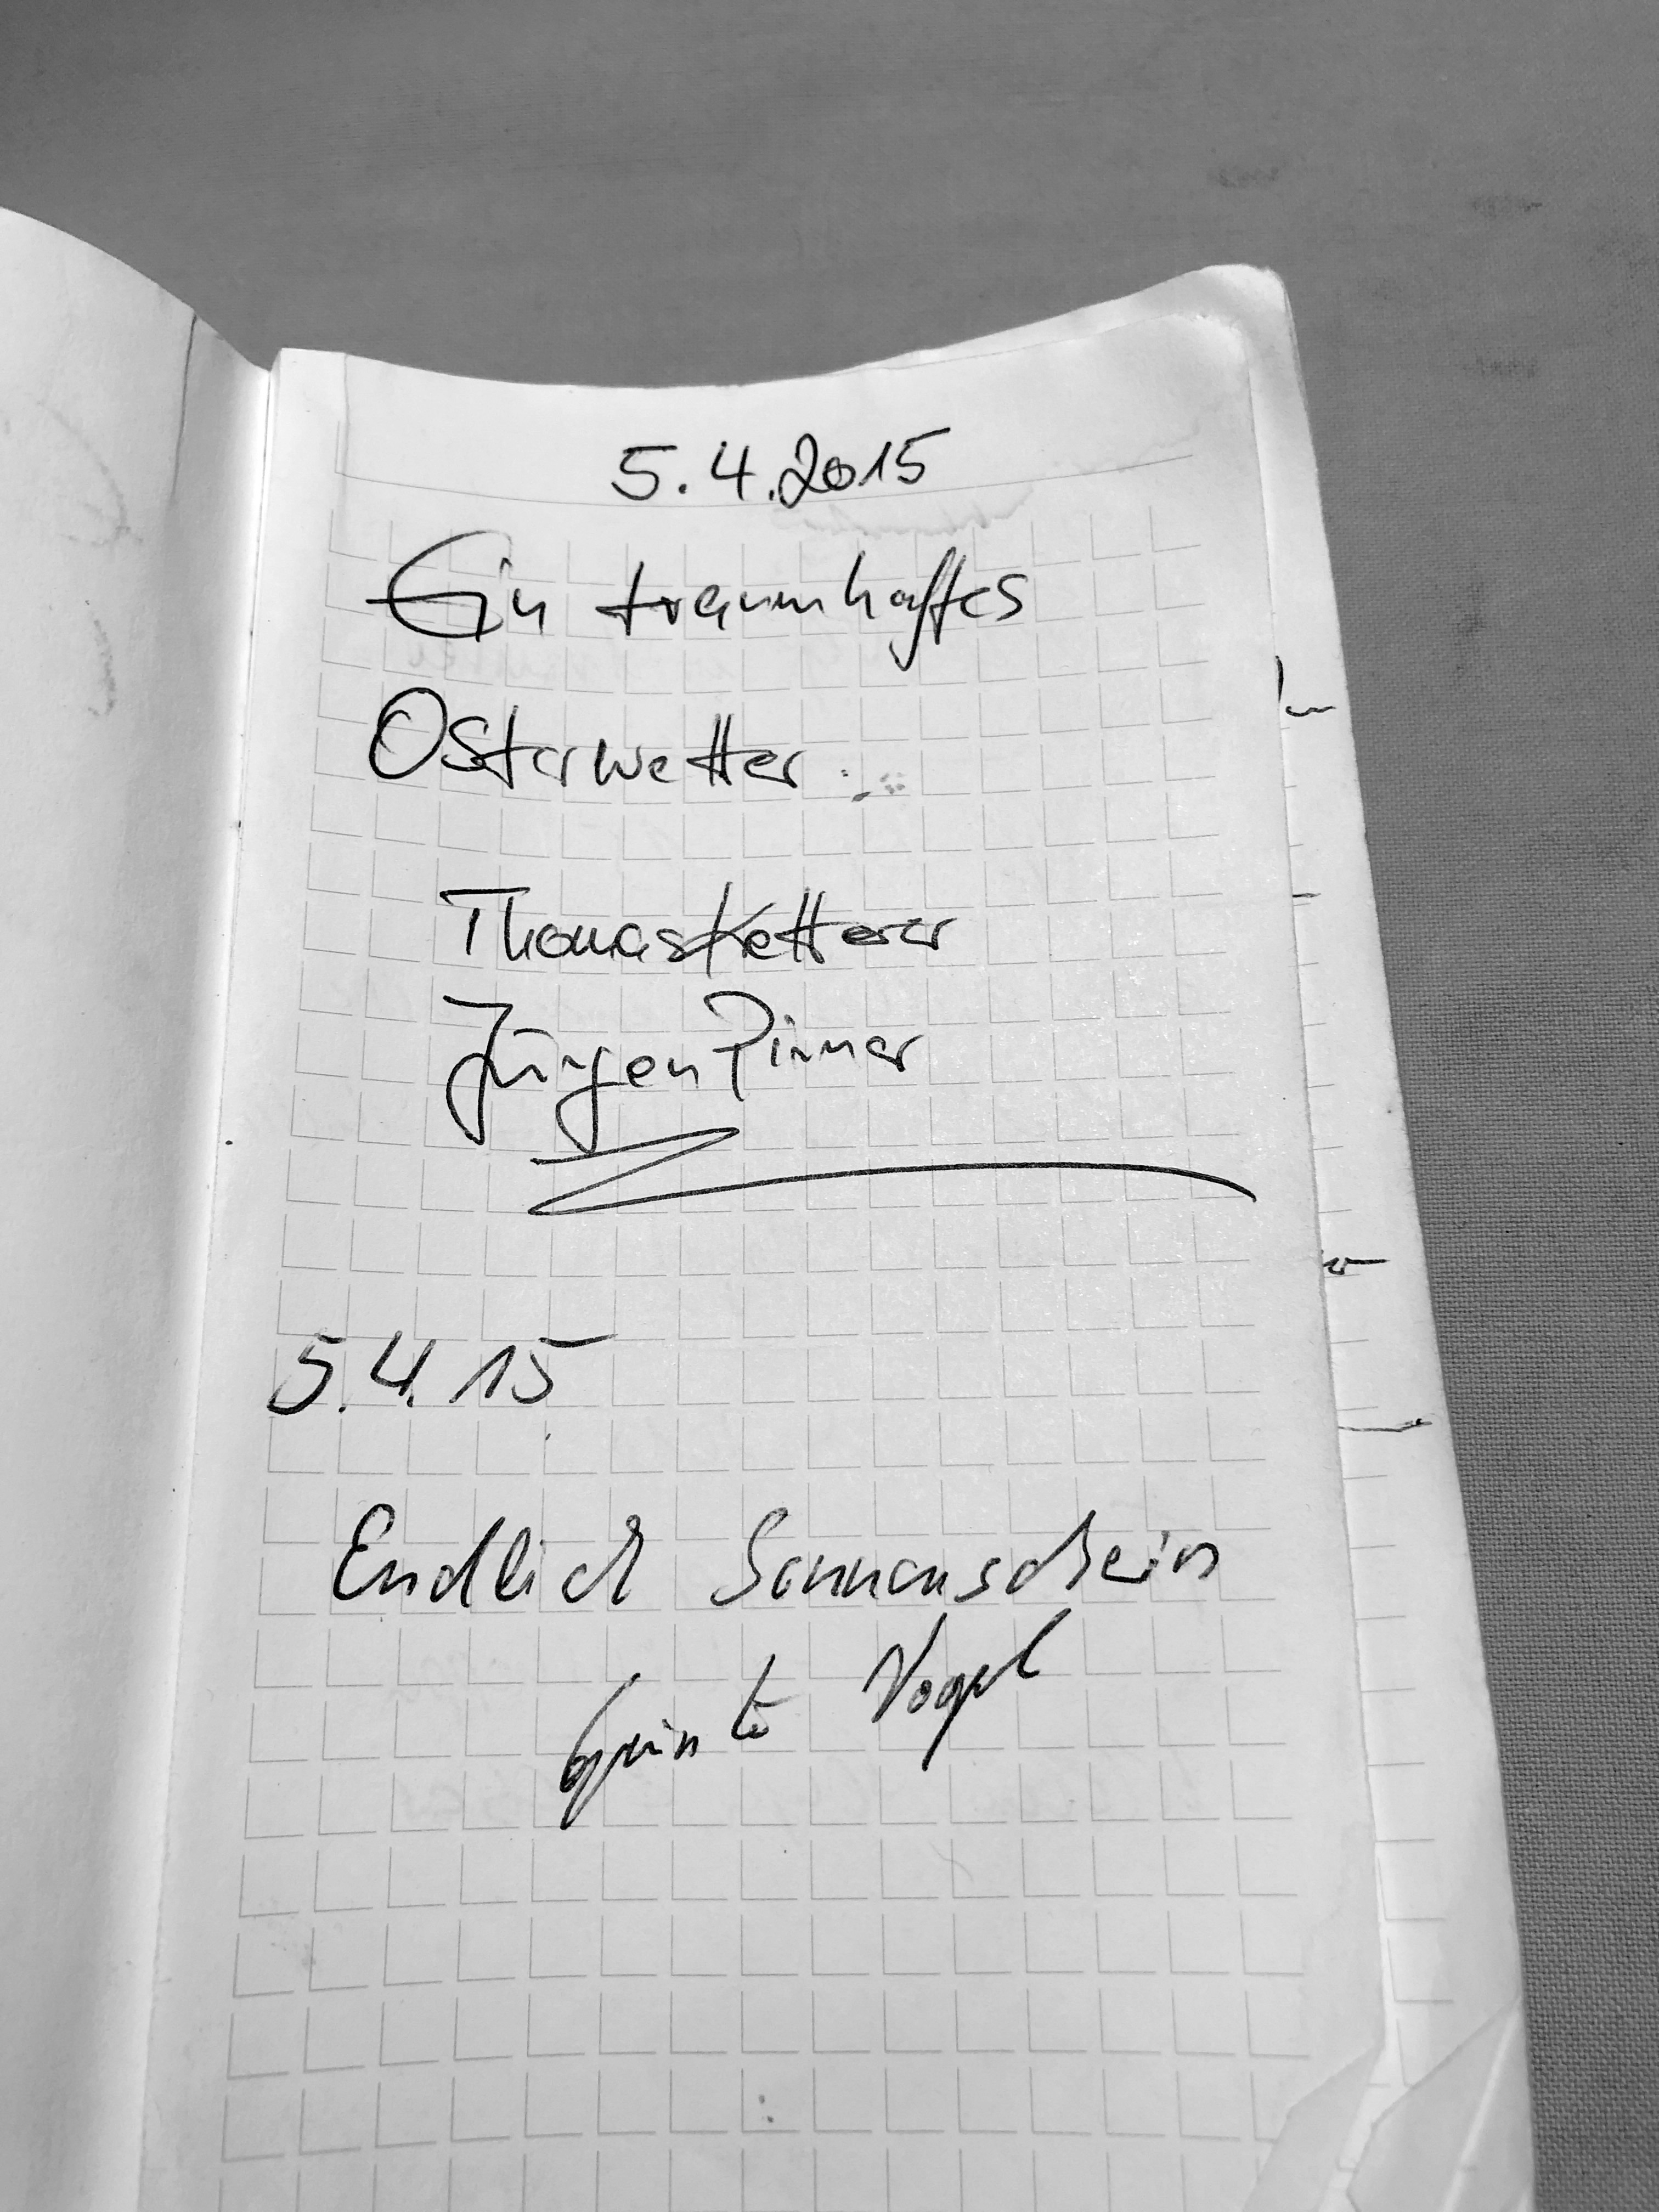 5.4.2015
Ein traumhaftes
Osterwetter...
Thomas Ketterer
Jürgen Pinner
5.4.15
Endlich Sonnenschein
Vogel